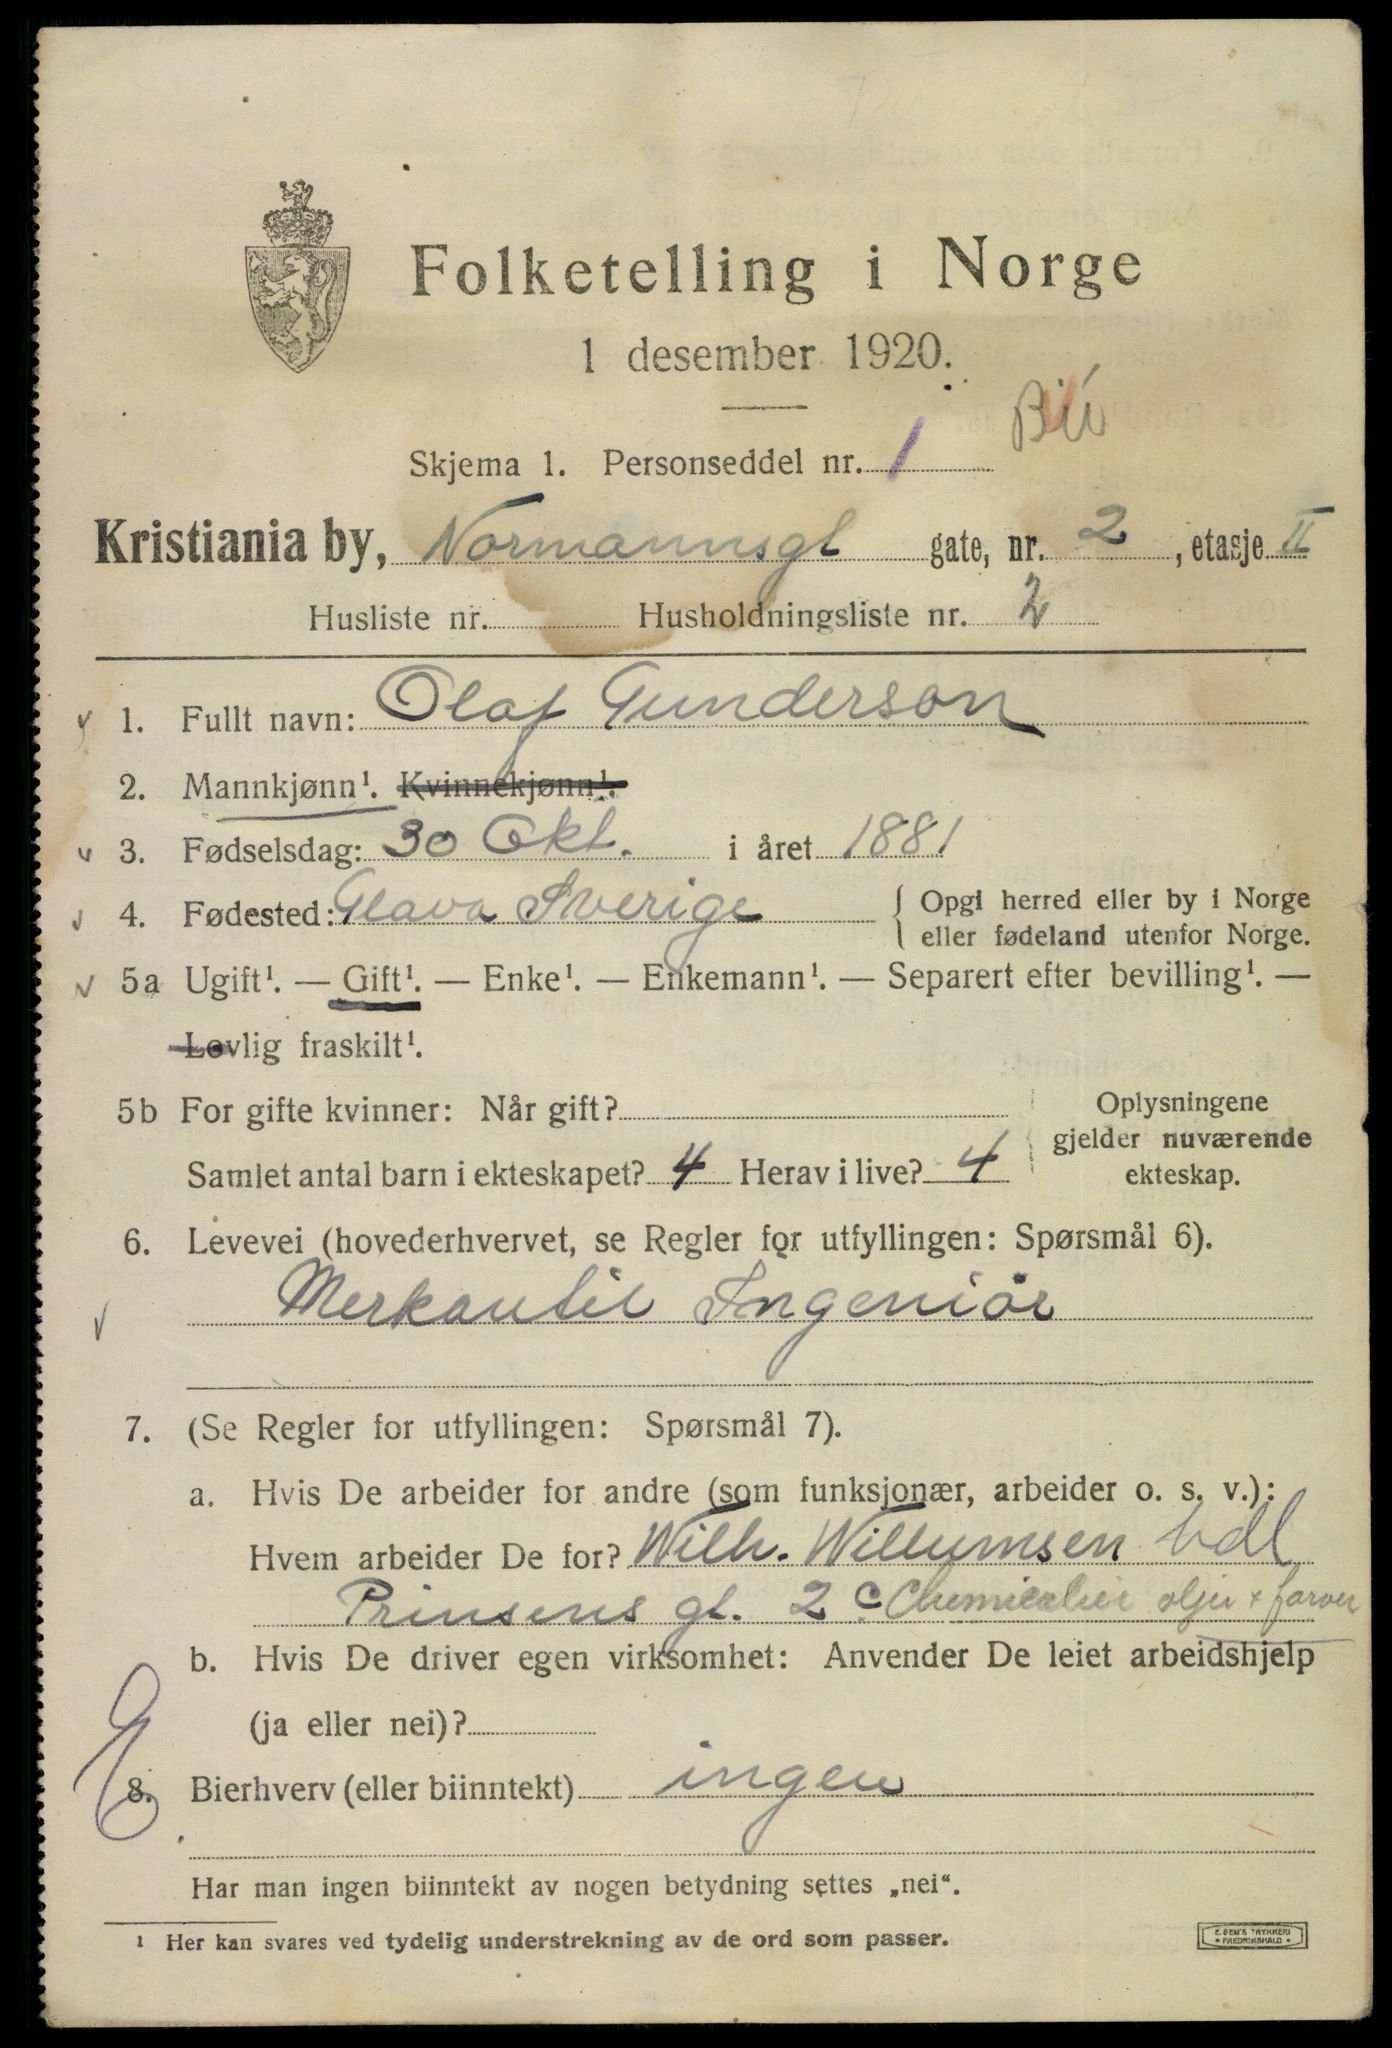 Folketelling i Norge
1 desember 1920.
Skjema 1. Personseddel nr. 1
Kristiania by, Normannsgt gate, nr. 2, etasje II
Husliste nr. Husholdningsliste nr. 2
1. Fullt navn: Olaf Gunderson
2. Mannkjønn¹. Kvinnekjønn¹.
3. Fødselsdag: 30 Okt. i året 1881
4. Fødested: Glava Sverige { Opgi herred eller by i Norge
eller fødeland utenfor Norge.
5a Ugift¹. — Gift¹. — Enke¹. — Enkemann¹. — Separert efter bevilling¹. —
Lovlig fraskilt¹.
5b For gifte kvinner: Når gift? Oplysningene
gjelder nuværende
Samlet antal barn i ekteskapet? 4 Herav i live? 4 ekteskap.
6. Levevei (hovederhvervet, se Regler for utfyllingen: Spørsmål 6).
Merkantil Ingeniör
7. (Se Regler for utfyllingen: Spørsmål 7).
a. Hvis De arbeider for andre (som funksjonær, arbeider o. s. v.):
Hvem arbeider De for? Wilh. Willumsen
Prinsens gt. 2 c Chemicalier oljer + farver
b. Hvis De driver egen virksomhet: Anvender De leiet arbeidshjelp
(ja eller nei)?
8. Bierhverv (eller biinntekt) ingen
Har man ingen biinntekt av nogen betydning settes „nei“.
¹ Her kan svares ved tydelig understrekning av de ord som passer.
E. SEM'S TRYKKERI
• FREDRIKSHALD •